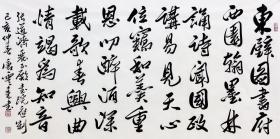 東壁圖書府
西園翰墨林
誦詩聞國政
講易見天心
位竊和羹重
恩叨醉酒深
載歌春興曲
情竭為知音
書院
己亥仲春唐雲来書